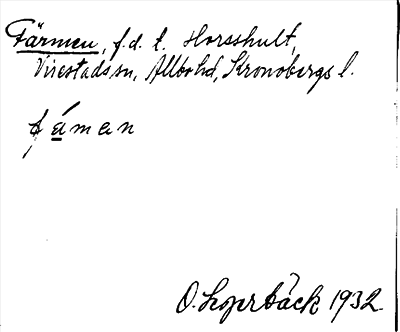 Färmen, f.d. t. Horsshult,
Virestads sn, Allbo hd, Kronobergs l.
fáman
O. Loprbäck 1932.